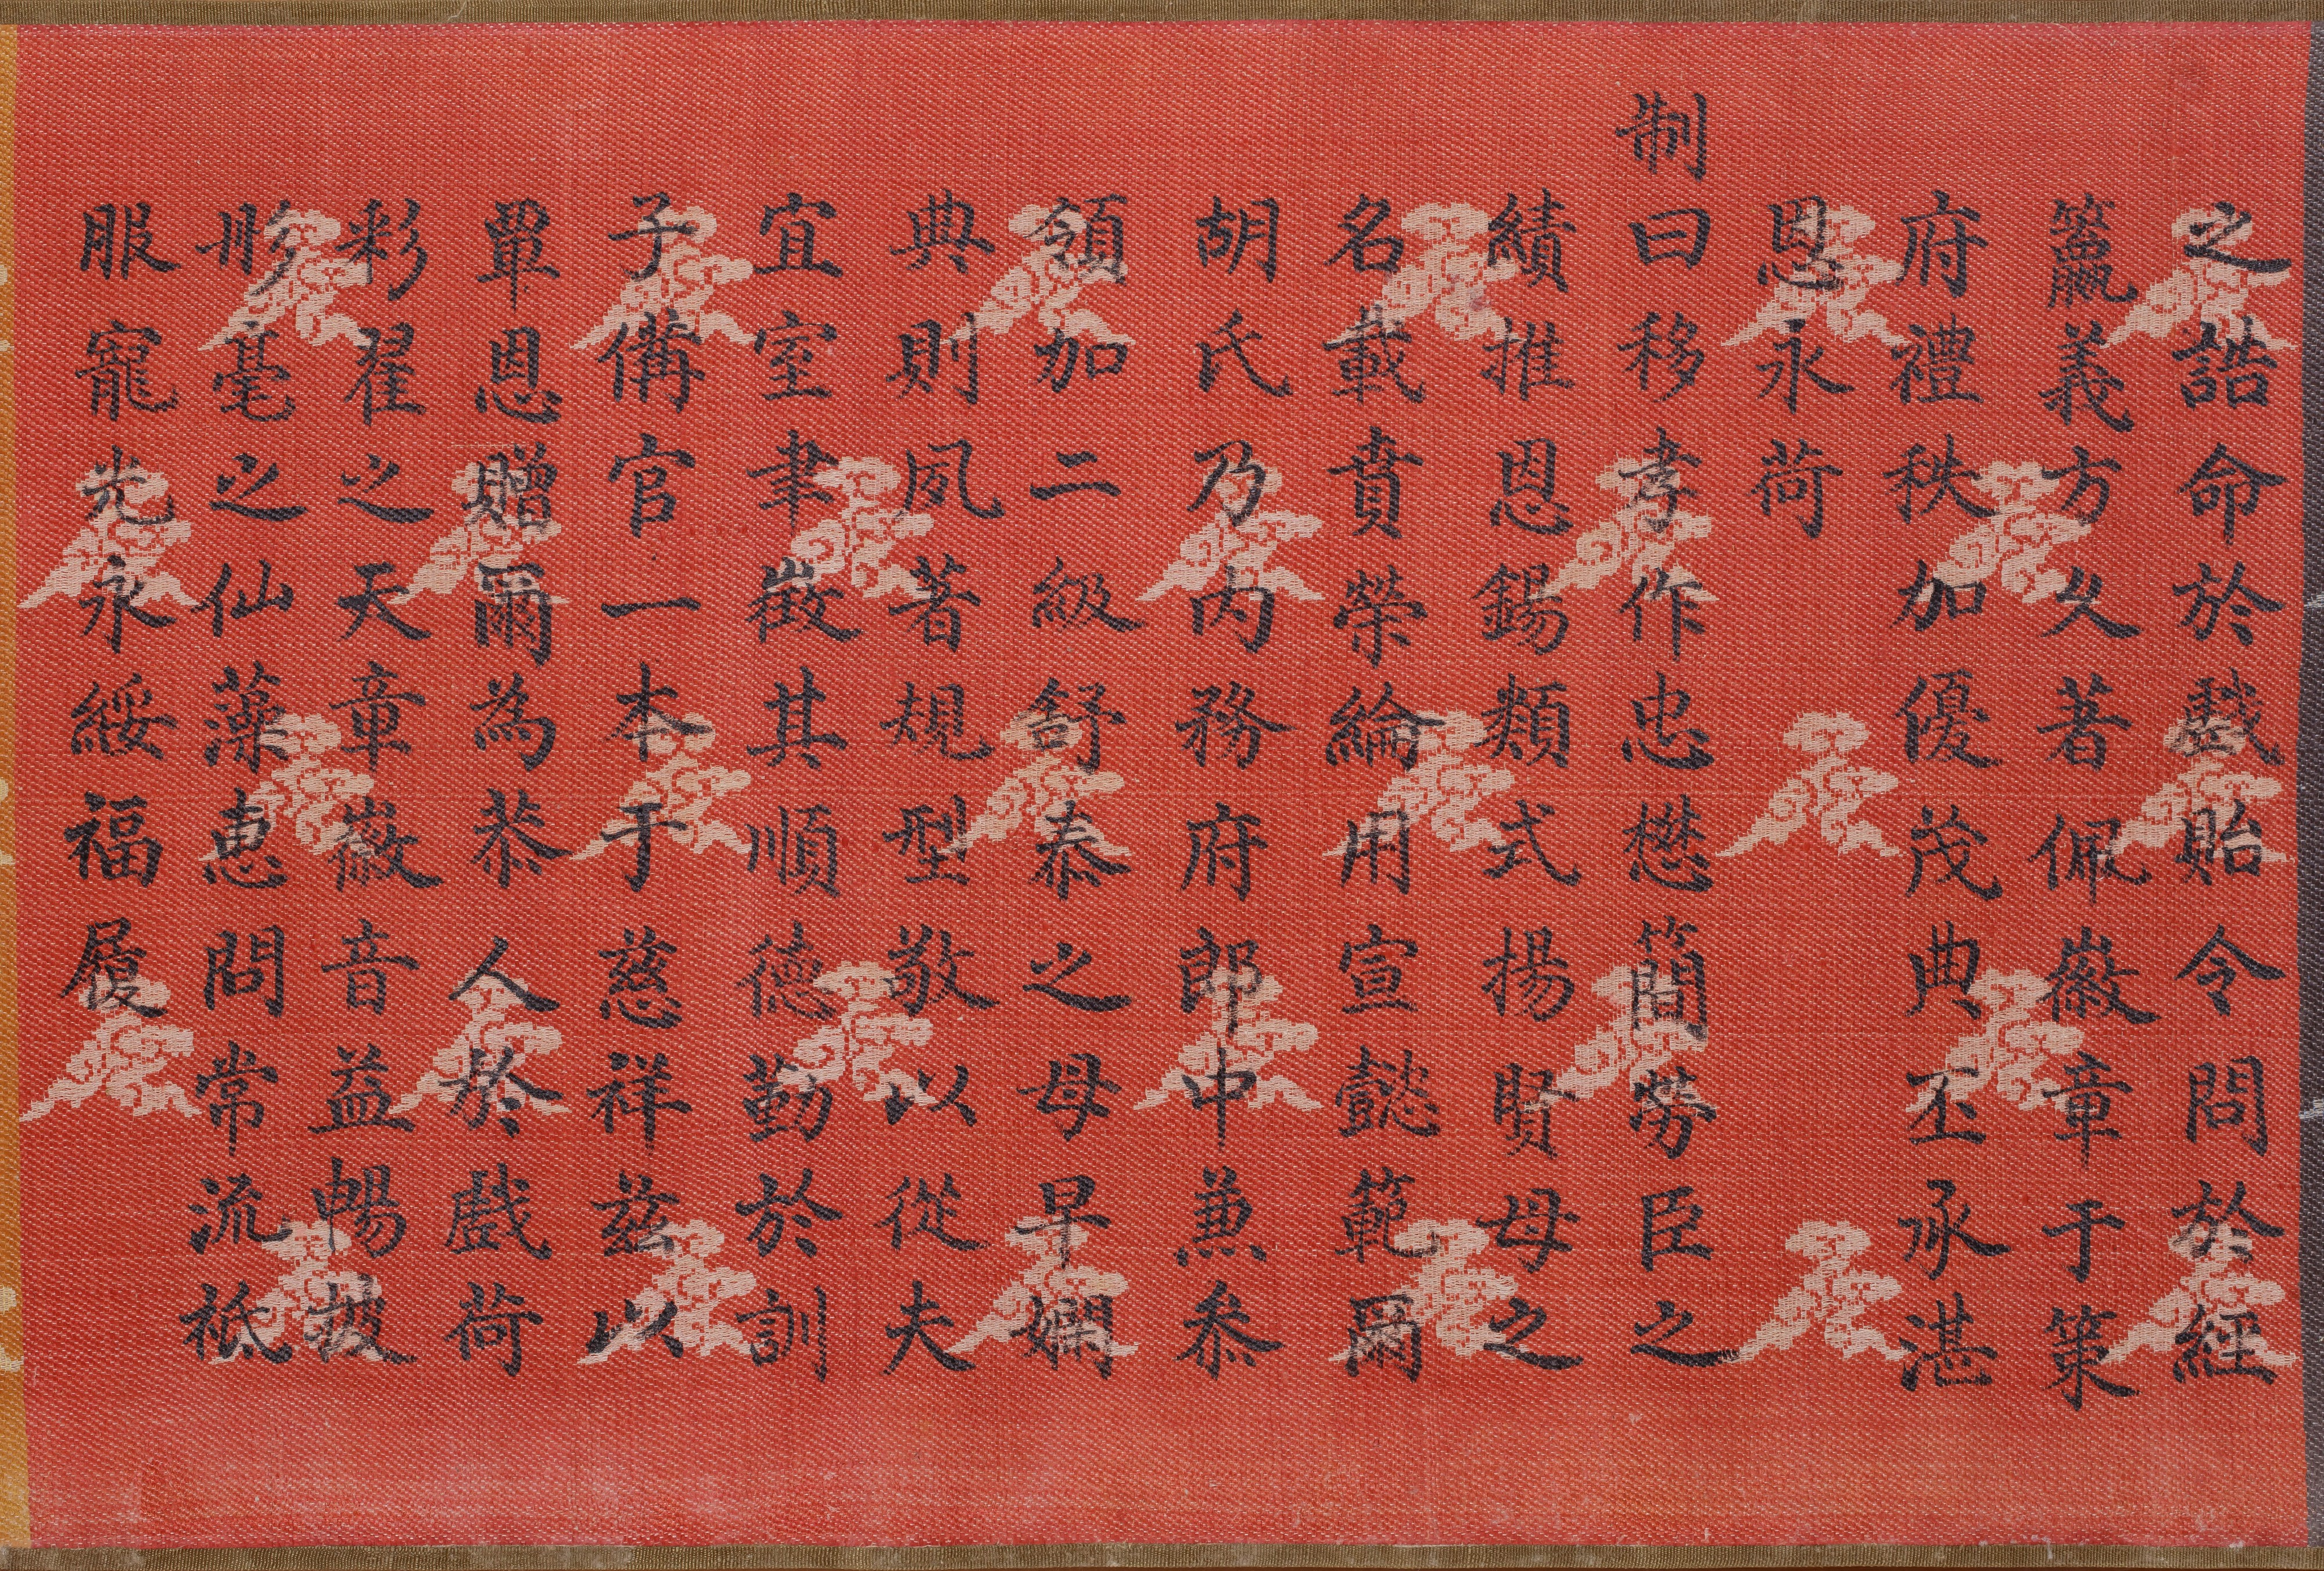 之誥命於戲貽令問於經
籯義方久著佩徽章于策
府禮秩加優茂典丕承湛
恩永荷
制曰移孝作忠懋簡勞臣之
績推恩錫類式揚賢母之
名載賁榮綸用宣懿範爾
胡氏乃內務府郎中兼叅
領加二級舒泰之母早嫻
典則夙著規型敬以從夫
宜室聿徵其順德勤於訓
子備官一本于慈祥茲以
覃恩贈爾為恭人於戲荷
彩翟之天章徽音益暢披
彤毫之仙藻惠問常流祗
服寵光永綏福履